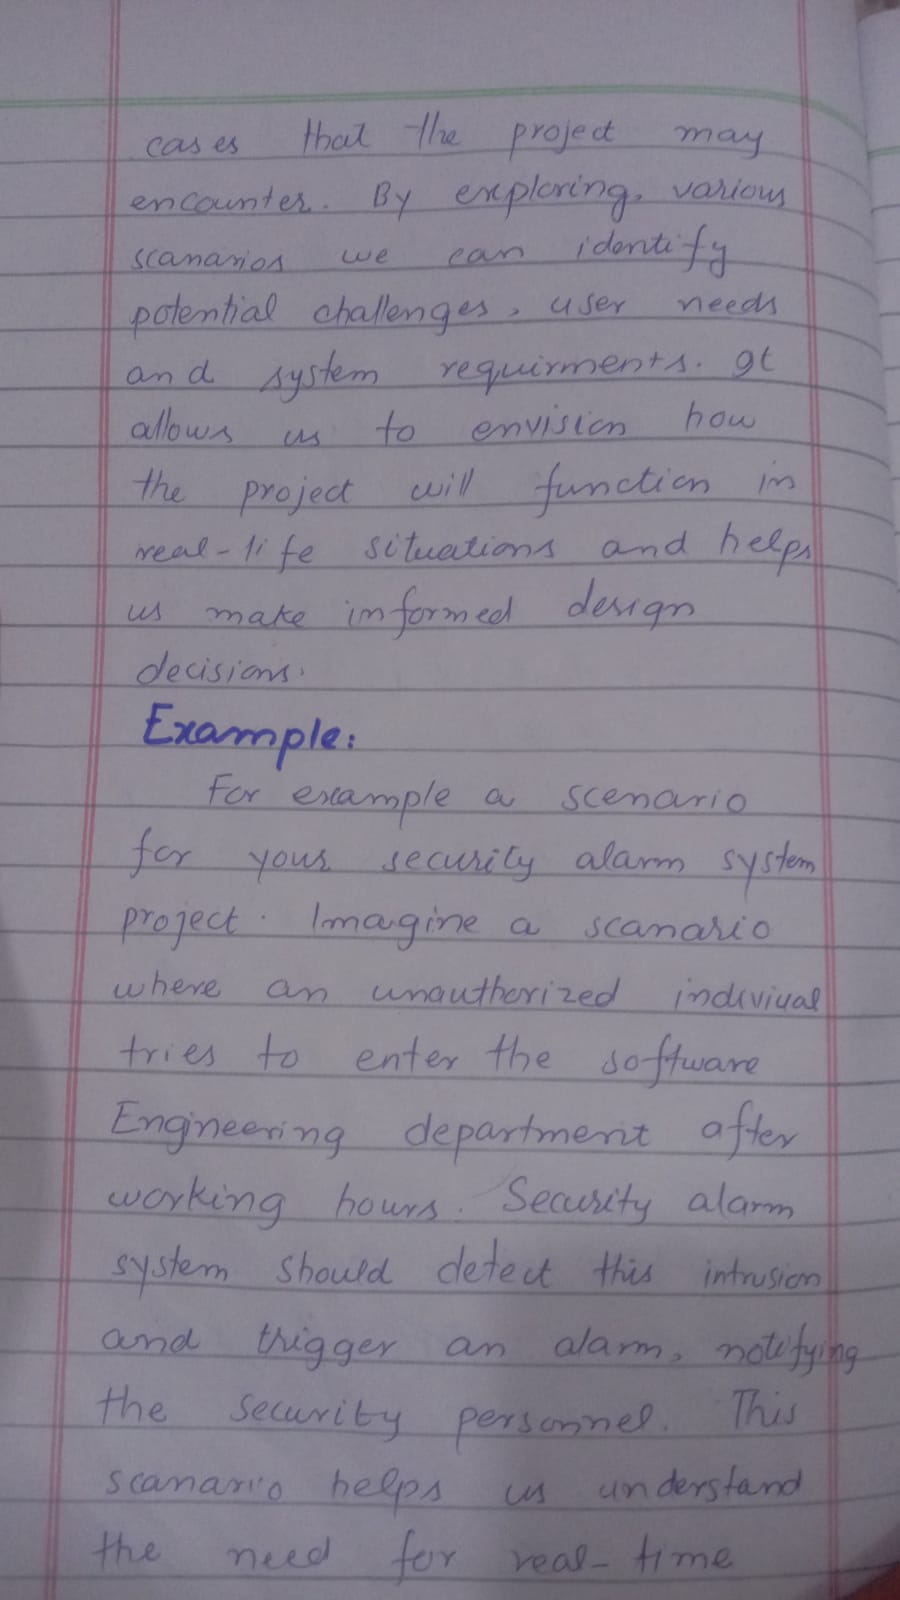 cases that the project may
encounter. By exploring, various
scanarios we can identify
potential challenges, user needs
and system requirments. It
allows us to envision how
the project will function in
real-life situations and helps
us make informed design
decisions.
Example:
For example a scenario
for your security alarm system
project. Imagine a scanario
where an unauthorized indiviual
tries to enter the software
Engineering department after
working hours. Security alarm
system should detect this intrusion
and trigger an alarm, notifying
the security personnel. This
scanario helps us understand
the need for real-time